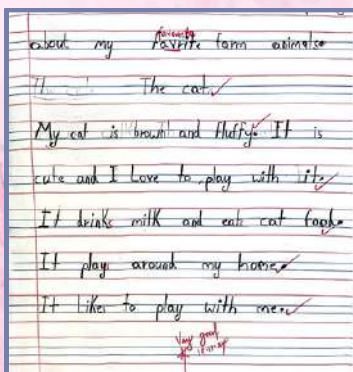 favourite
about my Favrite farm animals.
The cat.
My cat is brown and fluffy. It is
cute and I Love to play with it.
It drinks milk and eats cat food.
It plays around my home.
It likes to play with me.
Very good